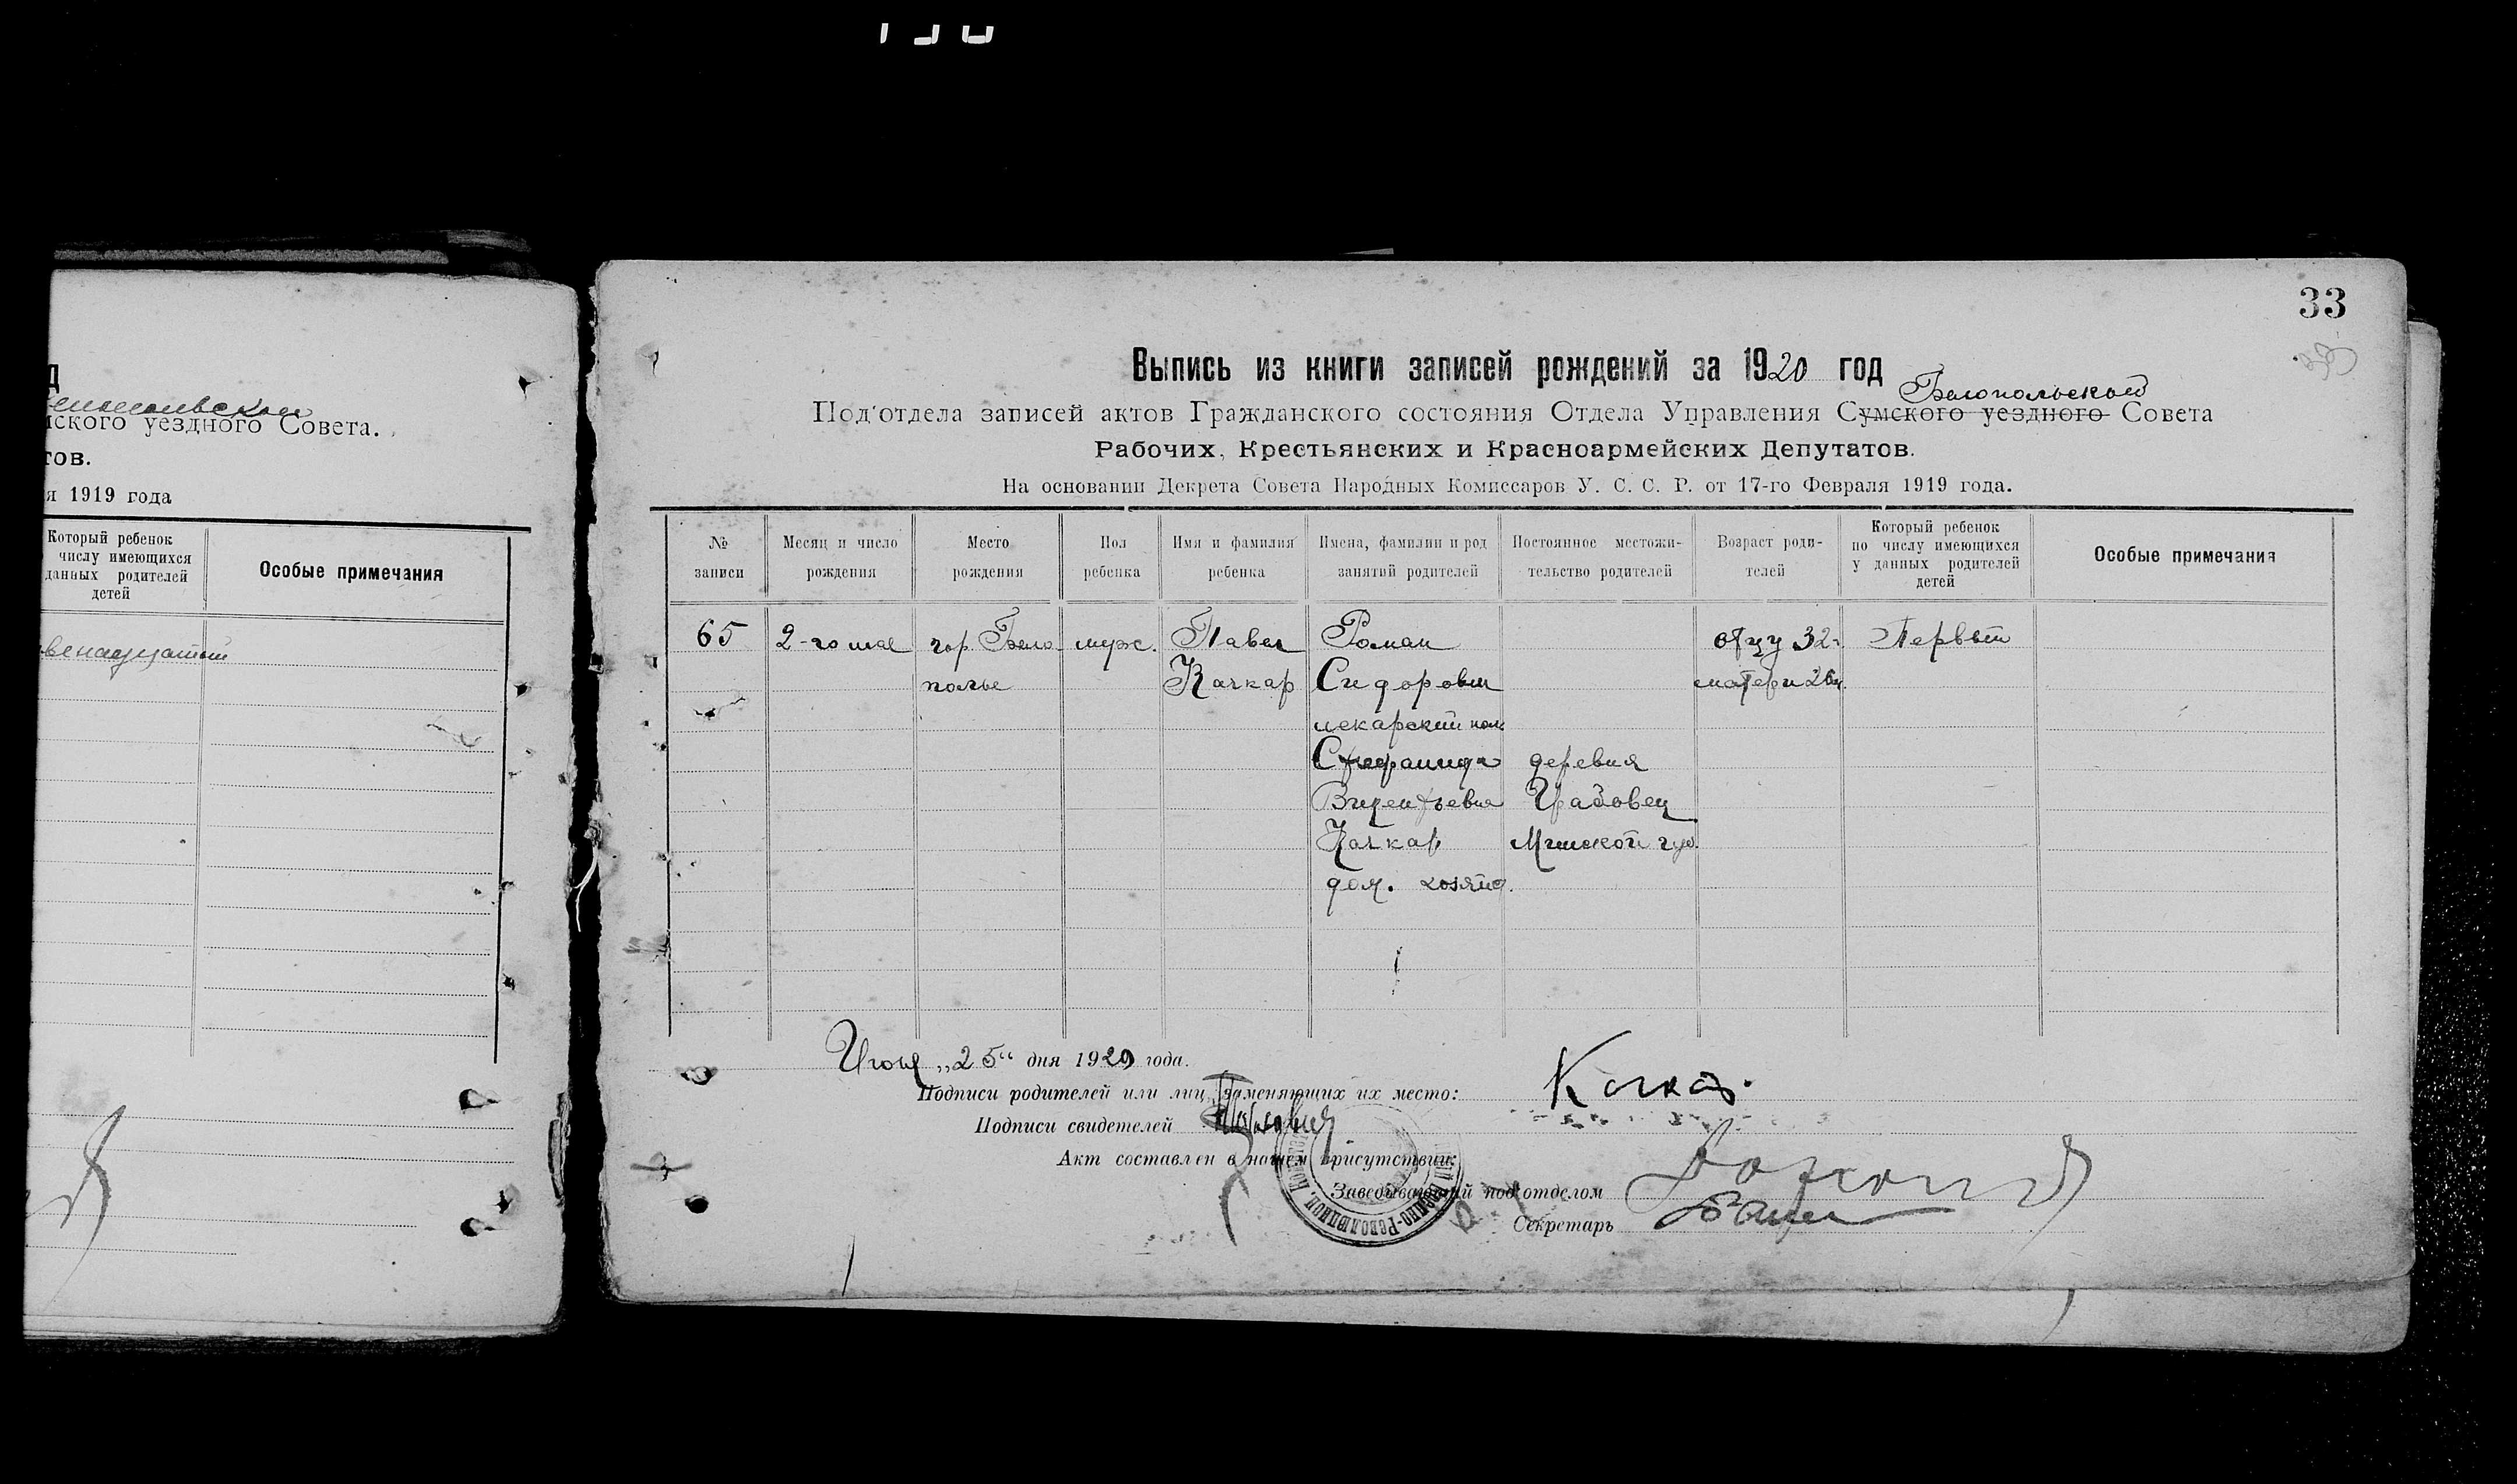 д
ского уездного Совета.
тов.
я 1919 года
Который ребенок
числу имеющихся
данных родителей
детей
Особые примечания
33
Выпись из книги записей рождений за 1920 год
Белопольской
Под'отдела записей актов Гражданского состояния Отдела Управления Сумского уездного Совета
Рабочих, Крестьянских и Красноармейских Депутатов.
На основании Декрета Совета Народных Комиссаров У. С. С. Р. от 17-го Февраля 1919 года.
№ записи
Месяц и число рождения
Место рождения
Пол ребенка
Имя и фамилия ребенка
Имена, фамилии и род занятий родителей
Постоянное местожительство родителей
Возраст родителей
Который ребенок
по числу имеющихся
у данных родителей
детей
Особые примечания
65 2-го мая гор. Бело- муж. Павел Роман отцу 32 Первый
полье Качкар Сидорович матери 26
лекарский пом
Стефанида деревня
Викентьевна Грабовец
Качкар Минской губ.
дом. хозяйс.
Июня „25“ дня 1920 года.
Подписи родителей или лиц, заменяющих их место: Качкар
Подписи свидетелей
Акт составлен в нашем присутствии:
Заведывающий под'отделом
Секретарь